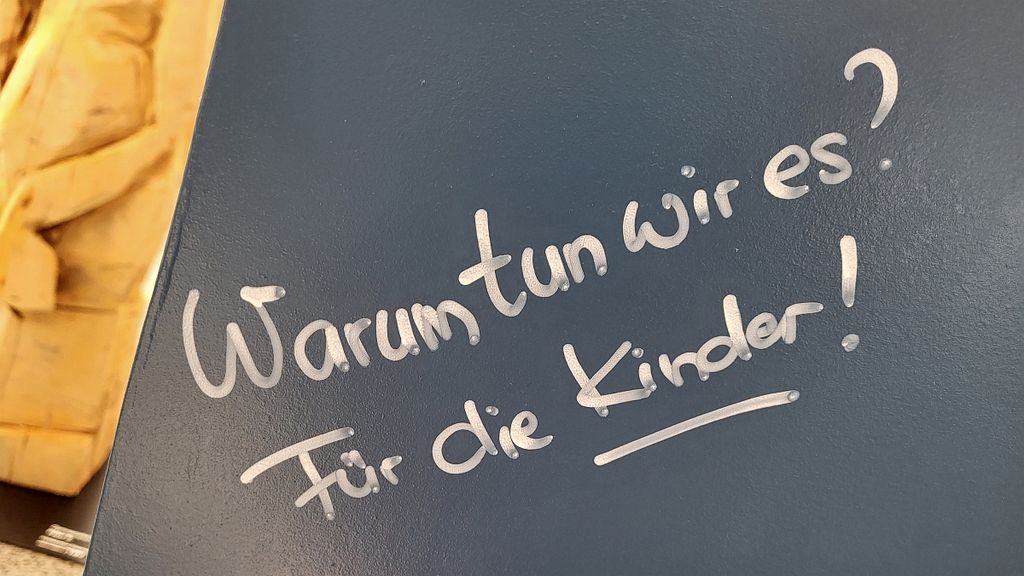 Warum tun wir es?
Für die Kinder!